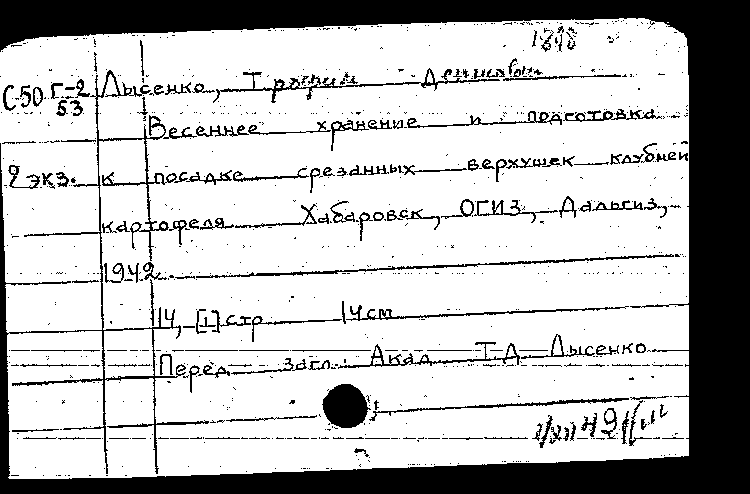 1898
С50 Г-2 Лысенко, Трофим Денисович
53
Весеннее хранение и подготовка
2 экз. к посадке срезанных верхушек клубней
картофеля Хабаровск, ОГИЗ, Дальгиз,
1942.
14, [1] стр 14 см
Перед загл.: Акад Т.Д Лысенко